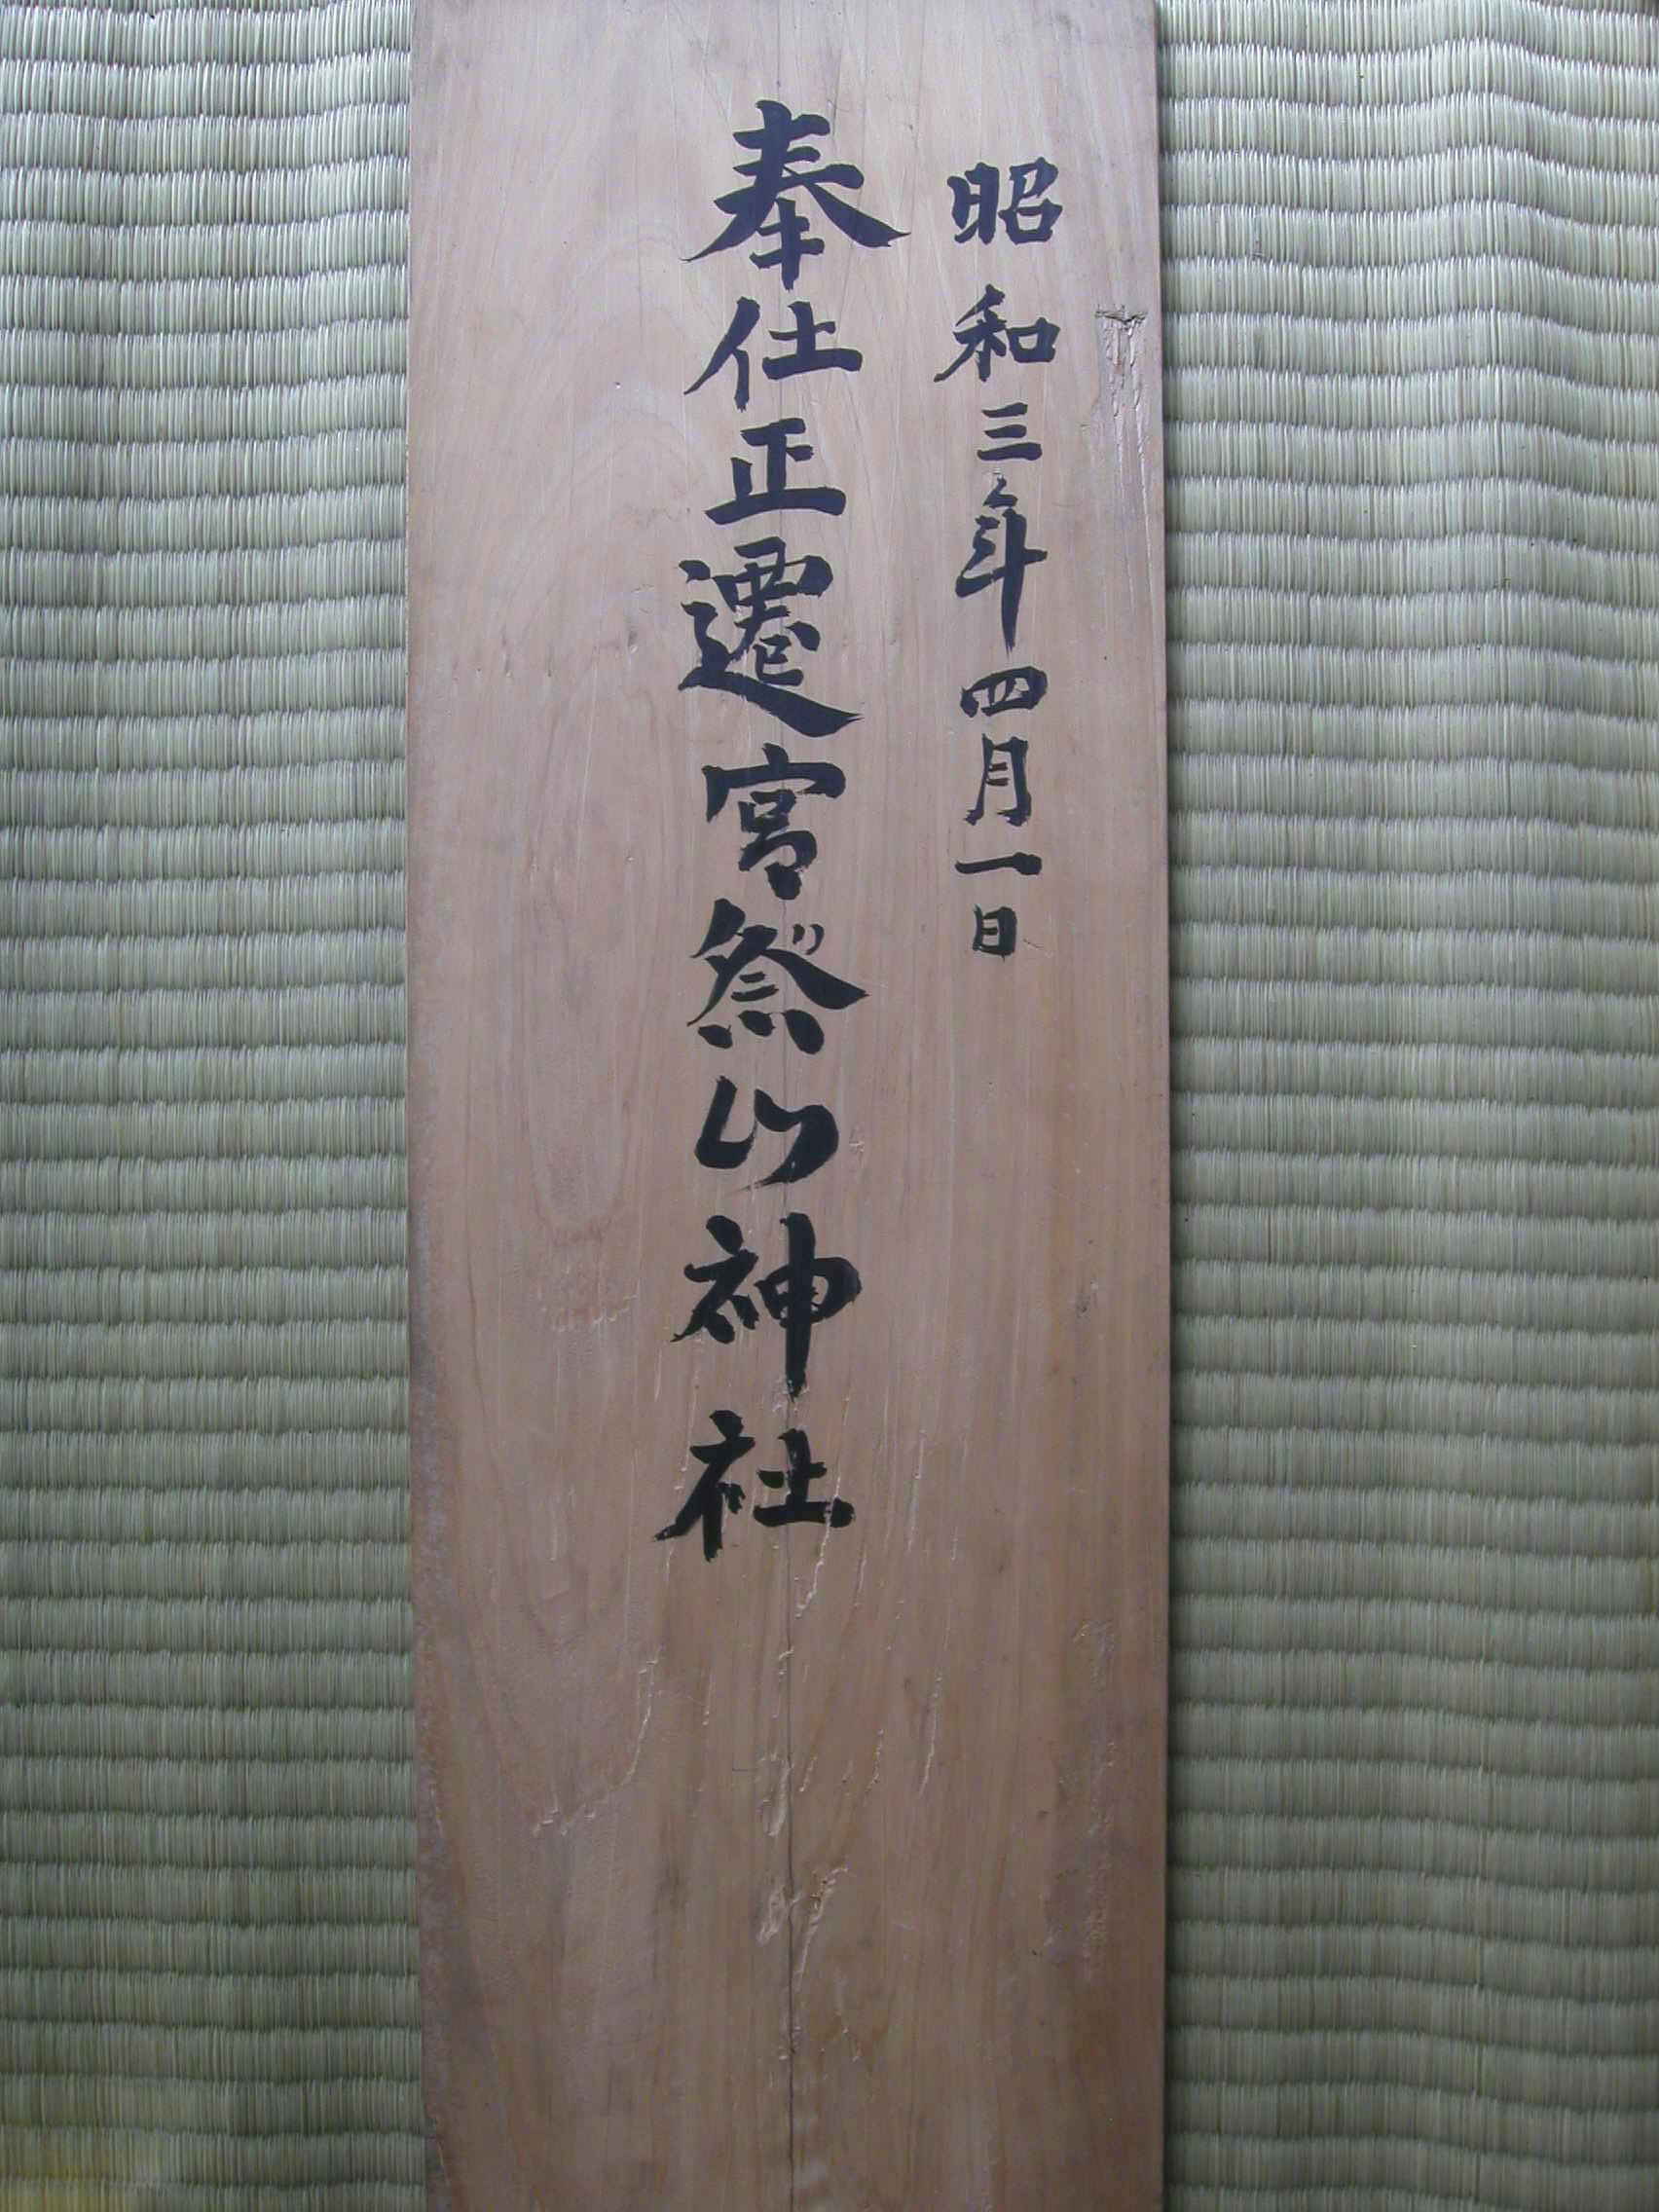 昭和三年四月一日
奉仕正遷宮祭山神社